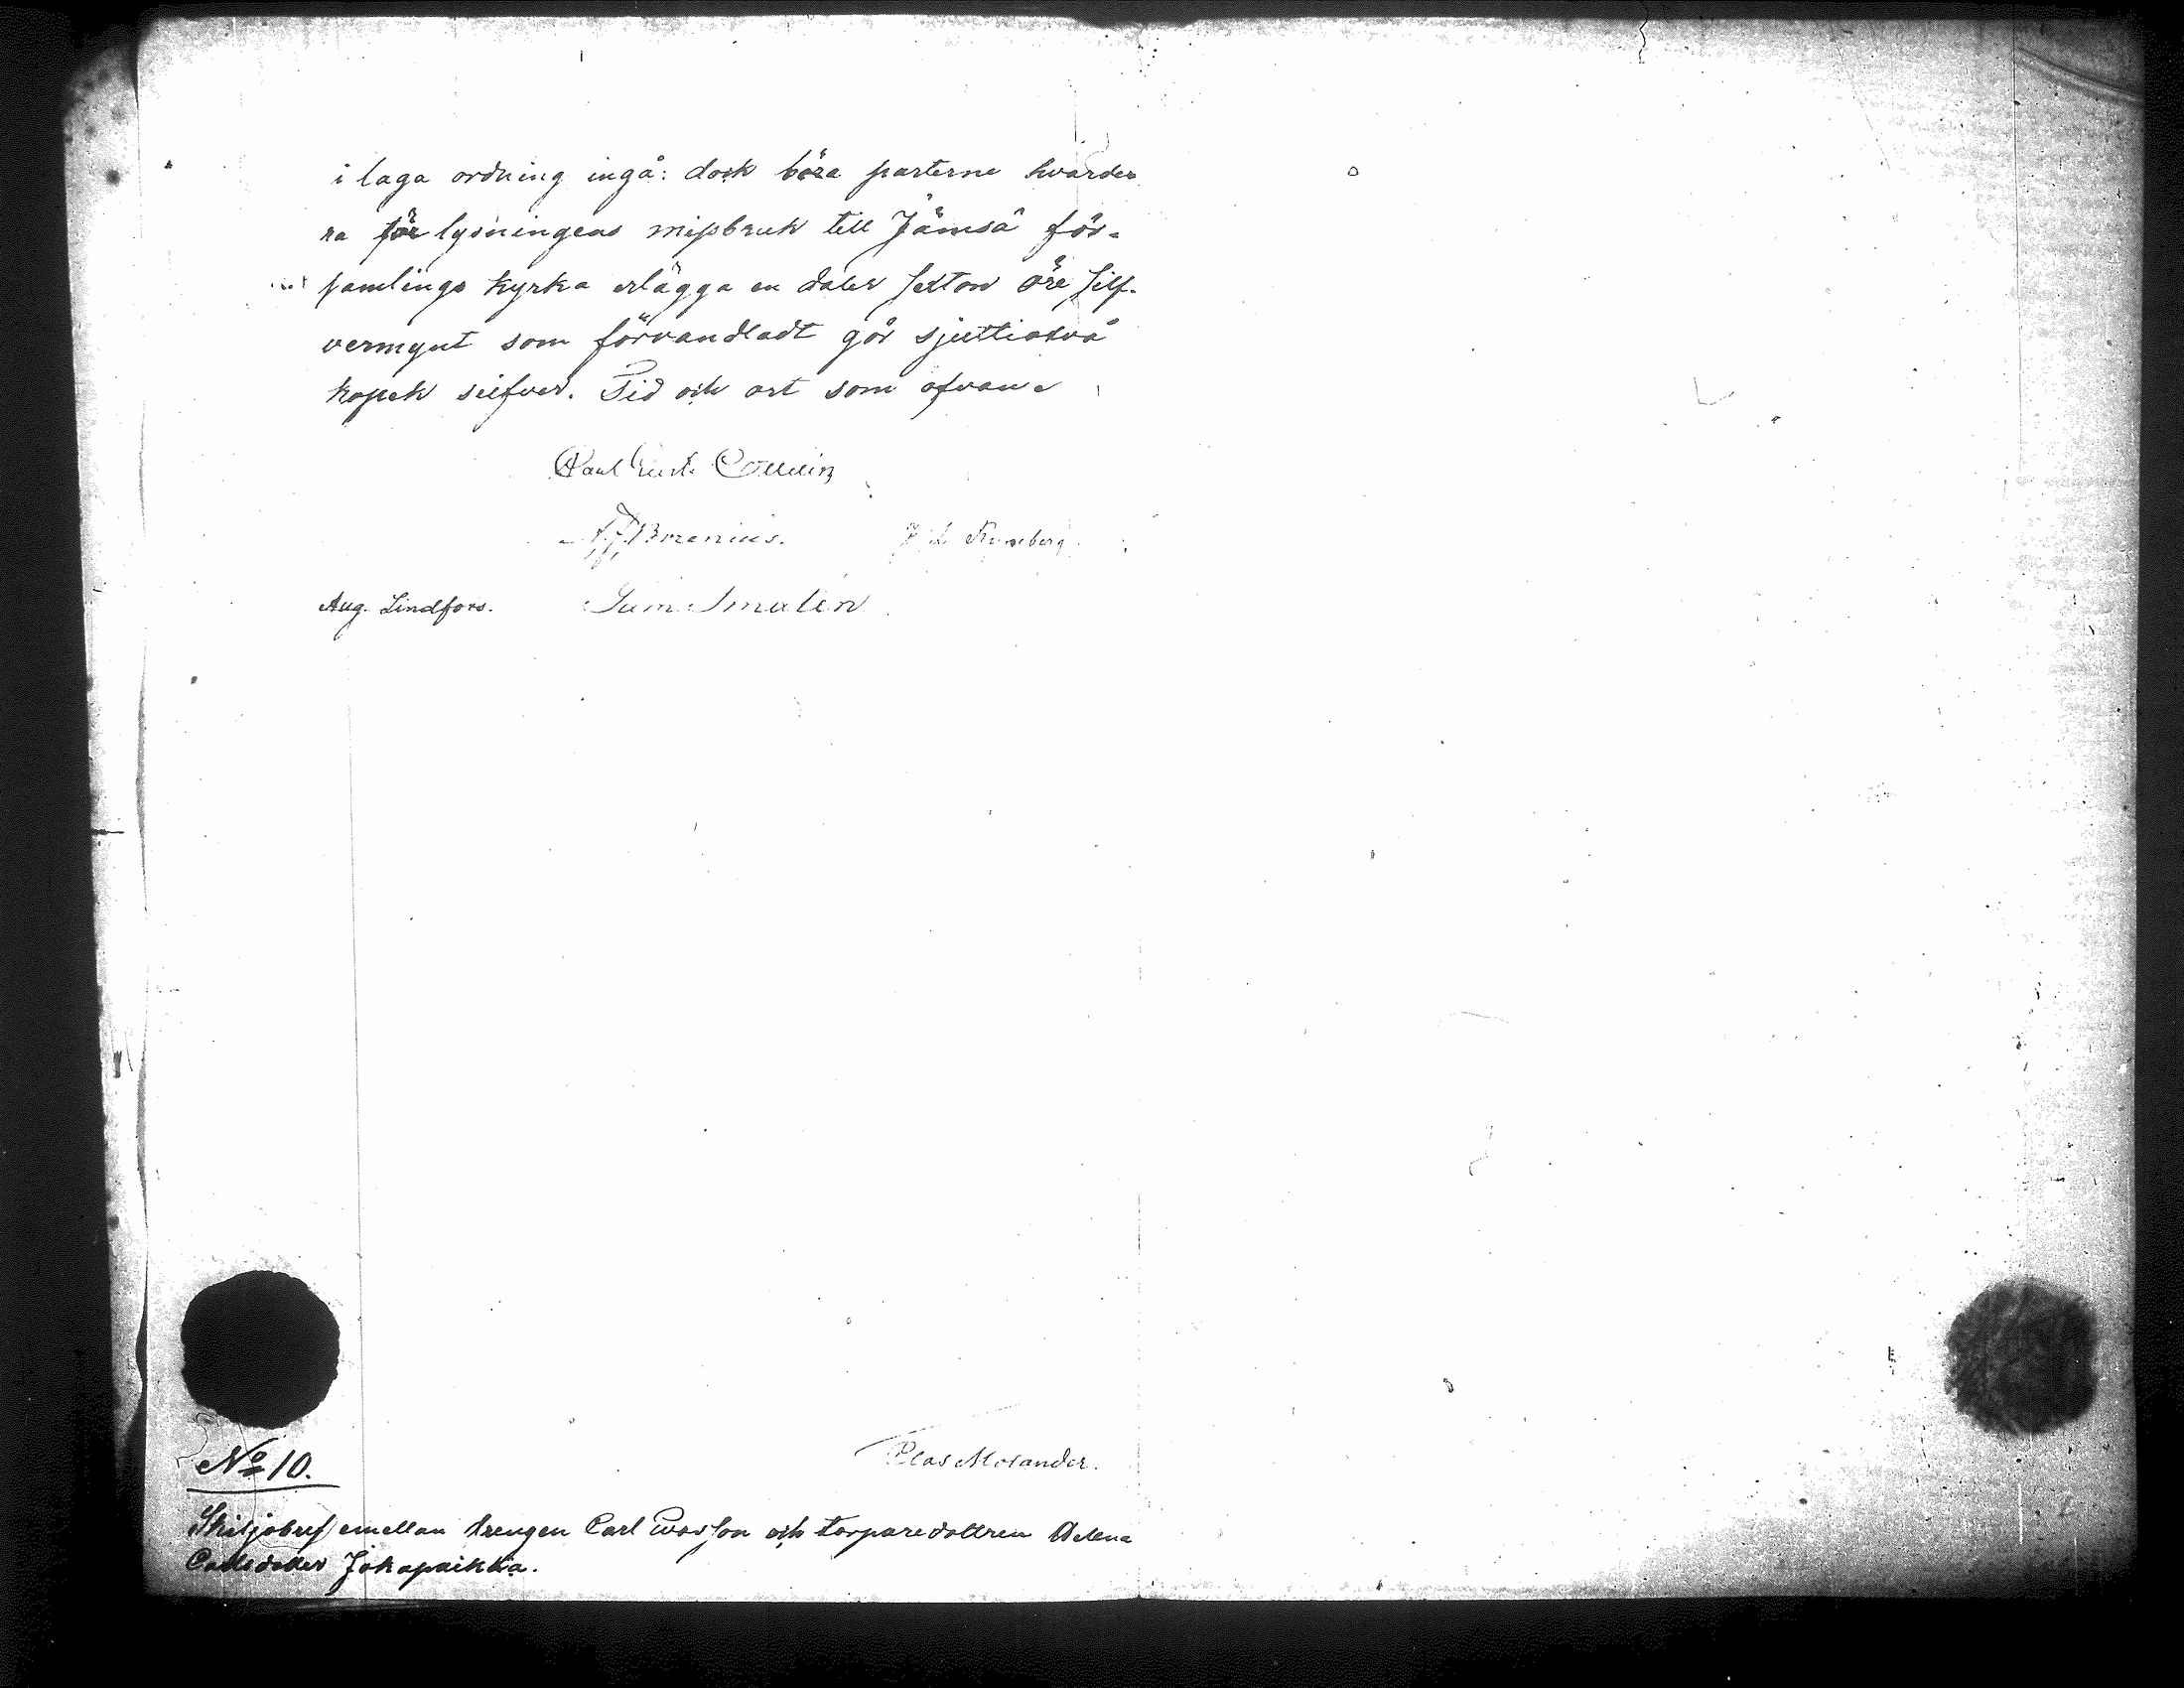 i laga ordning ingå: dock böra parterne hvarde-
ra för lysningens missbruk till Jämsä för-
samlings kyrka erlägga en daler sexton öre silf-
vermynt som förvandladt gör sjuttiotvå
kopek silfver. Tid och ort som ofvan.
Carl Gust. Ottelin
Borenius. J. L. Runeberg.
Aug. Lindfors. Sam. Smalén
Clas Molander.
No 10.
Skiljobref emellan drengen Carl och torparedottren Helena
Carlsdotter Jokapaikka.